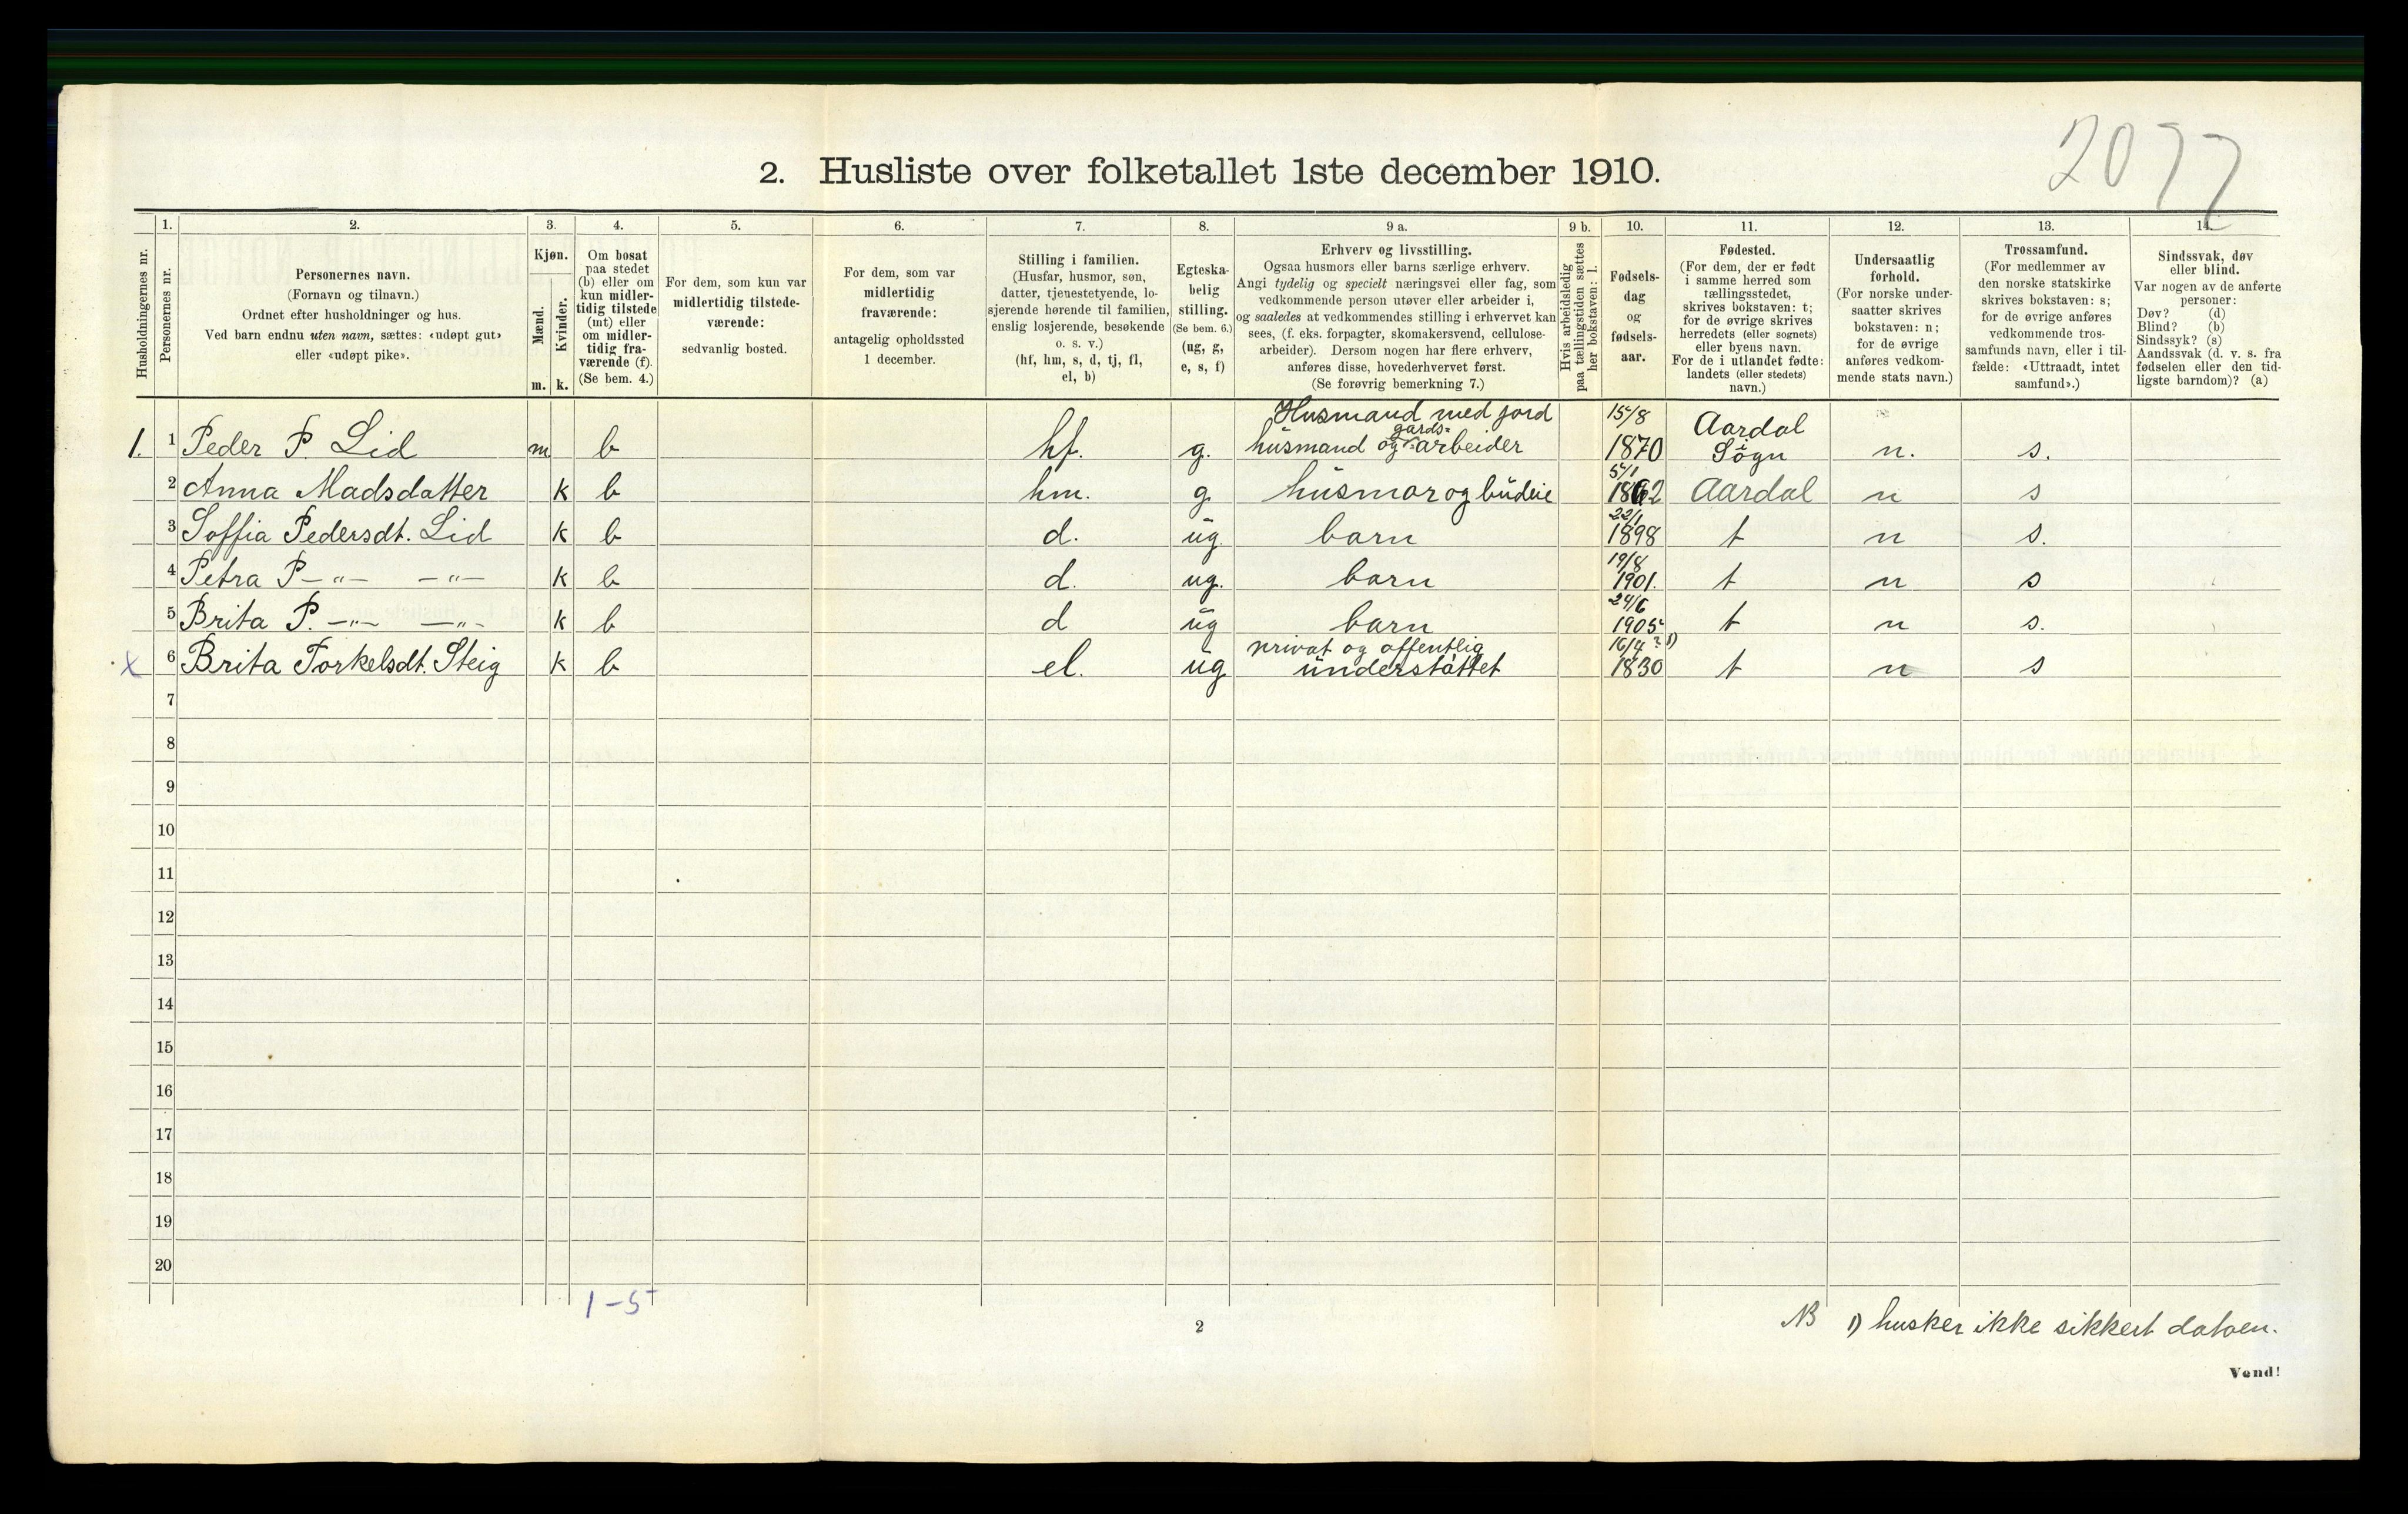 2077
2. Husliste over folketallet 1ste december 1910.
1. 2. 3. 4. 5. 6. 7. 8. 9 a. 9 b. 10. 11. 12. 13. 14.
Husholdningernes nr.
Personernes nr.
Personernes navn.
(Fornavn og tilnavn.)
Ordnet efter husholdninger og hus.
Ved barn endnu uten navn, sættes: «udøpt gut»
eller «udøpt pike».
Kjøn.
Mænd.
Kvinder.
m. k.
Om bosat
paa stedet
(b) eller om
kun midler-
tidig tilstede
(mt) eller
om midler-
tidig fra-
værende (f).
(Se bem. 4.)
For dem, som kun var
midlertidig tilstede-
værende:
sedvanlig bosted.
For dem, som var
midlertidig
fraværende:
antagelig opholdssted
1 december.
Stilling i familien.
(Husfar, husmor, søn,
datter, tjenestetyende, lo-
sjerende hørende til familien,
enslig losjerende, besøkende
o. s. v.)
(hf, hm, s, d, tj, fl,
el, b)
Egteska-
belig
stilling.
(Se bem. 6.)
(ug, g,
e, s, f)
Erhverv og livsstilling.
Ogsaa husmors eller barns særlige erhverv.
Angi tydelig og specielt næringsvei eller fag, som
vedkommende person utøver eller arbeider i,
og saaledes at vedkommendes stilling i erhvervet kan
sees, (f. eks. forpagter, skomakersvend, cellulose-
arbeider). Dersom nogen har flere erhverv,
anføres disse, hovederhvervet først.
(Se forøvrig bemerkning 7.)
Hvis arbeidsledig
paa tællingstiden sættes
her bokstaven: l.
Fødsels-
dag
og
fødsels-
aar.
Fødested.
(For dem, der er født
i samme herred som
tællingsstedet,
skrives bokstaven: t;
for de øvrige skrives
herredets (eller sognets)
eller byens navn.
For de i utlandet fødte:
landets (eller stedets)
navn.)
Undersaatlig
forhold.
(For norske under-
saatter skrives
bokstaven: n;
for de øvrige
anføres vedkom-
mende stats navn.)
Trossamfund.
(For medlemmer av
den norske statskirke
skrives bokstaven: s;
for de øvrige anføres
vedkommende tros-
samfunds navn, eller i til-
fælde: «Uttraadt, intet
samfund».)
Sindssvak, døv
eller blind.
Var nogen av de anførte
personer:
Døv? (d)
Blind? (b)
Sindssyk? (s)
Aandssvak (d. v. s. fra
fødselen eller den tid-
ligste barndom)? (a)
Husmand med jord 15/8 Aardal
gards-
1. 1 Peder P. Lid m b hf. g. husmand og arbeider 1870 i Sogn n. s.
5/1
2 Anna Madsdatter k b hm. g. husmor og budeie 1862 Aardal n s
22/1
3 Soffia Pedersdt. Lid k b d. ug. barn 1898 t n s.
19/8
4 Petra P —„— —„— k b d. ug. barn 1901. t n s
24/6
5 Brita P. —„— —„— k b d ug barn 1905 t n s.
privat og offentlig 16/4 ? 1)
x 6 Brita Torkelsdt. Steig k b el. ug understøttet 1830 t n s
7
8
9
10
11
12
13
14
15
16
17
18
19
20
1 - 5
2
NB 1) husker ikke sikkert datoen.
Vend!